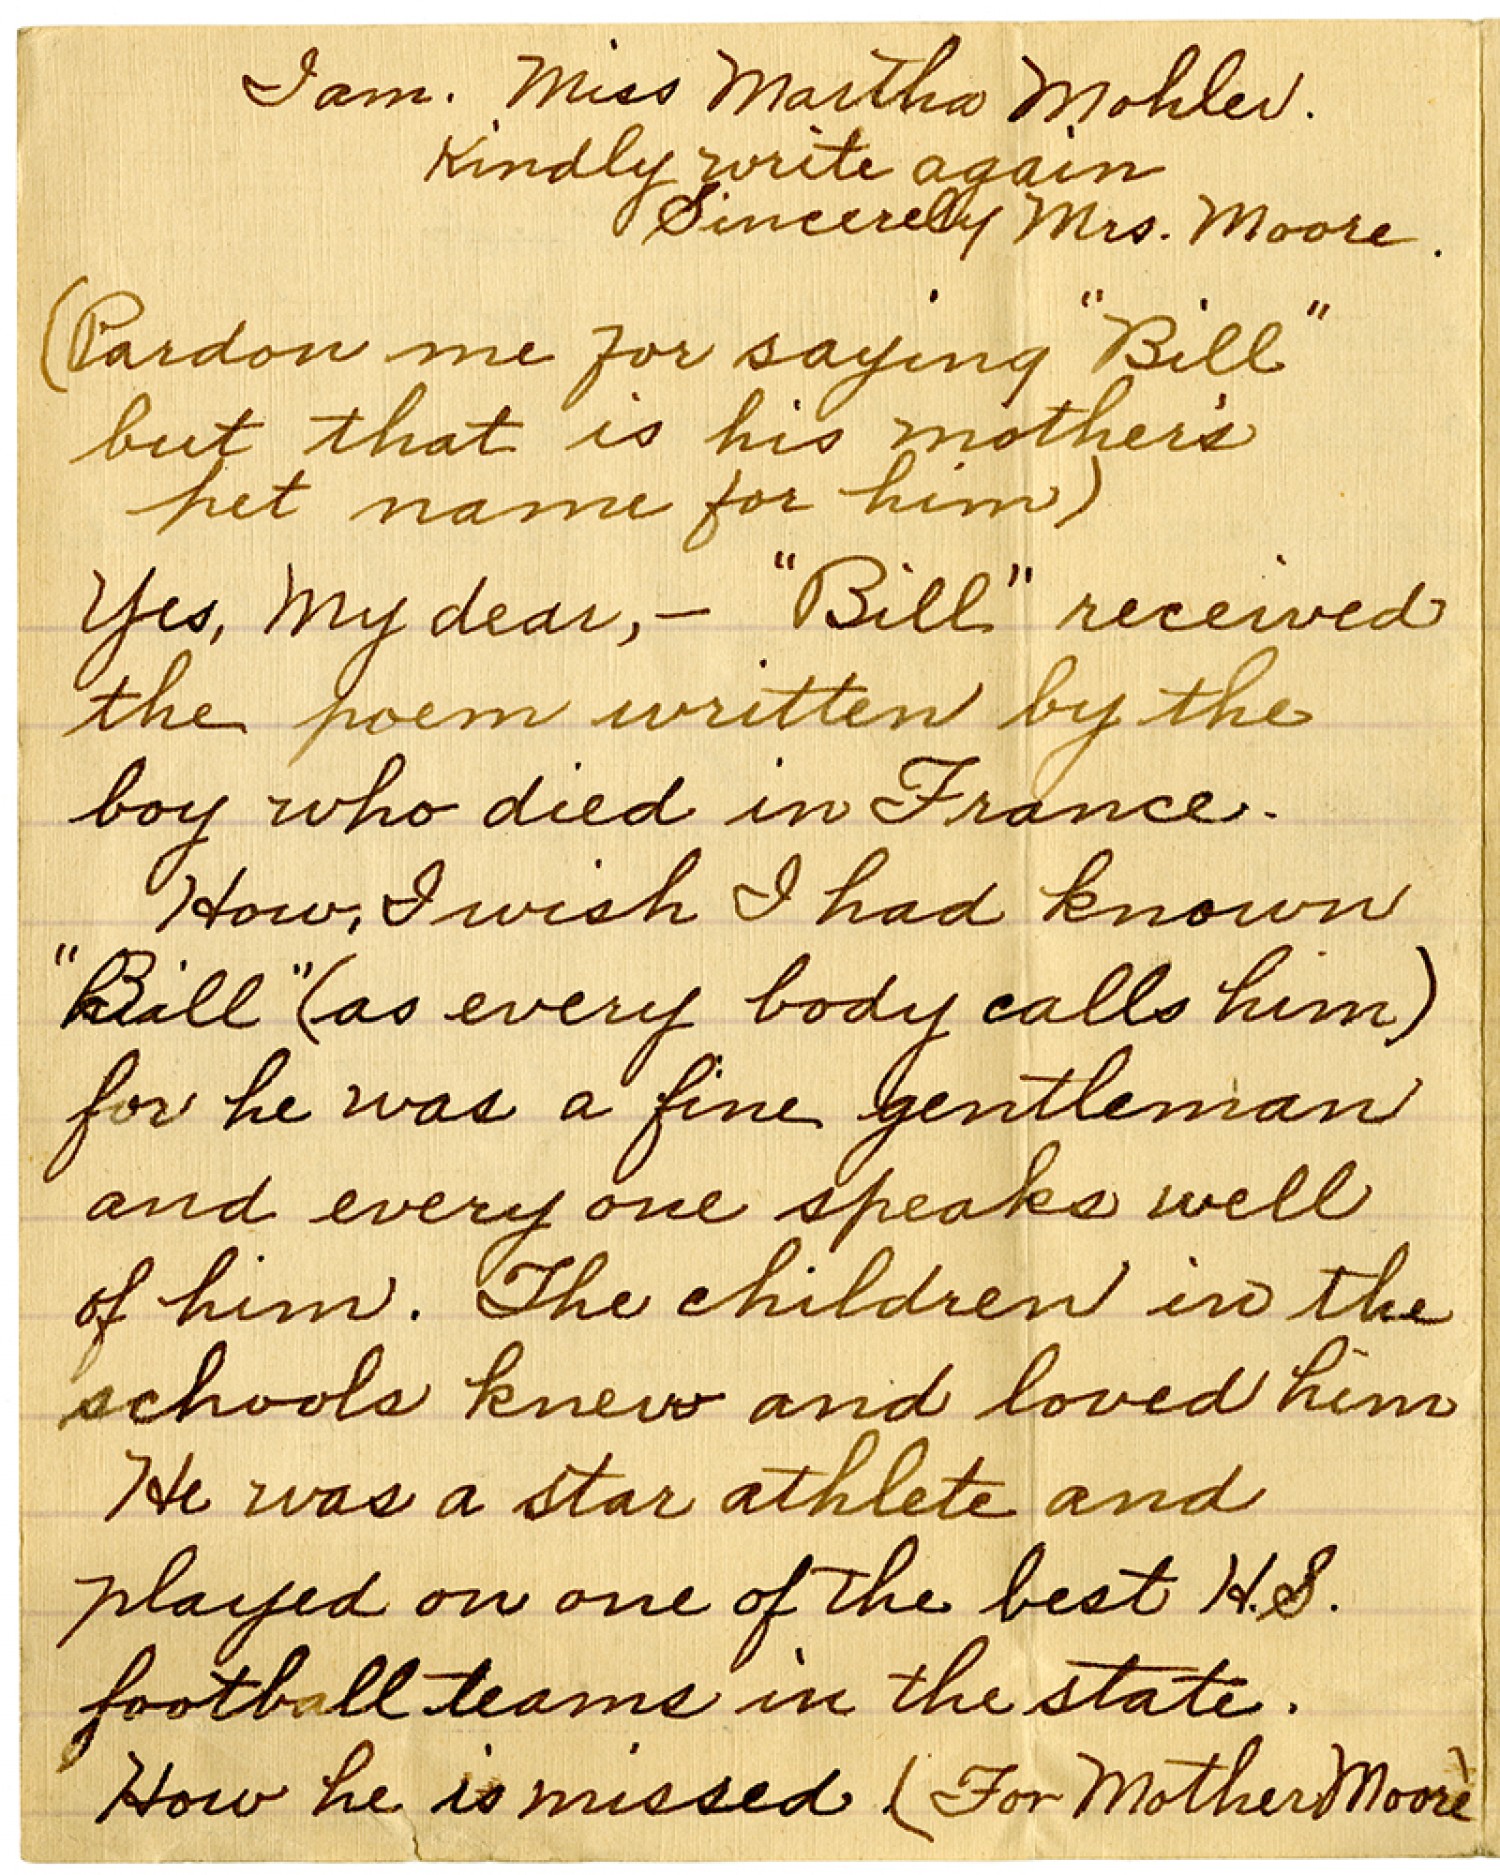 I am. Miss Martha Mohler.
Kindly write again
Sincerely Mrs. Moore.
(Pardon me for saying "Bill"
but that is his mother's
pet name for him)
Yes, My dear, – "Bill" received
the poem written by the
boy who died in France.
How, I wish I had known
"Bill" (as every body calls him)
for he was a fine gentleman
and every one speaks well
of him. The children in the
schools knew and loved him
He was a star athlete and
played on one of the best H.S.
football teams in the state.
How he is missed (For Mother Moore)